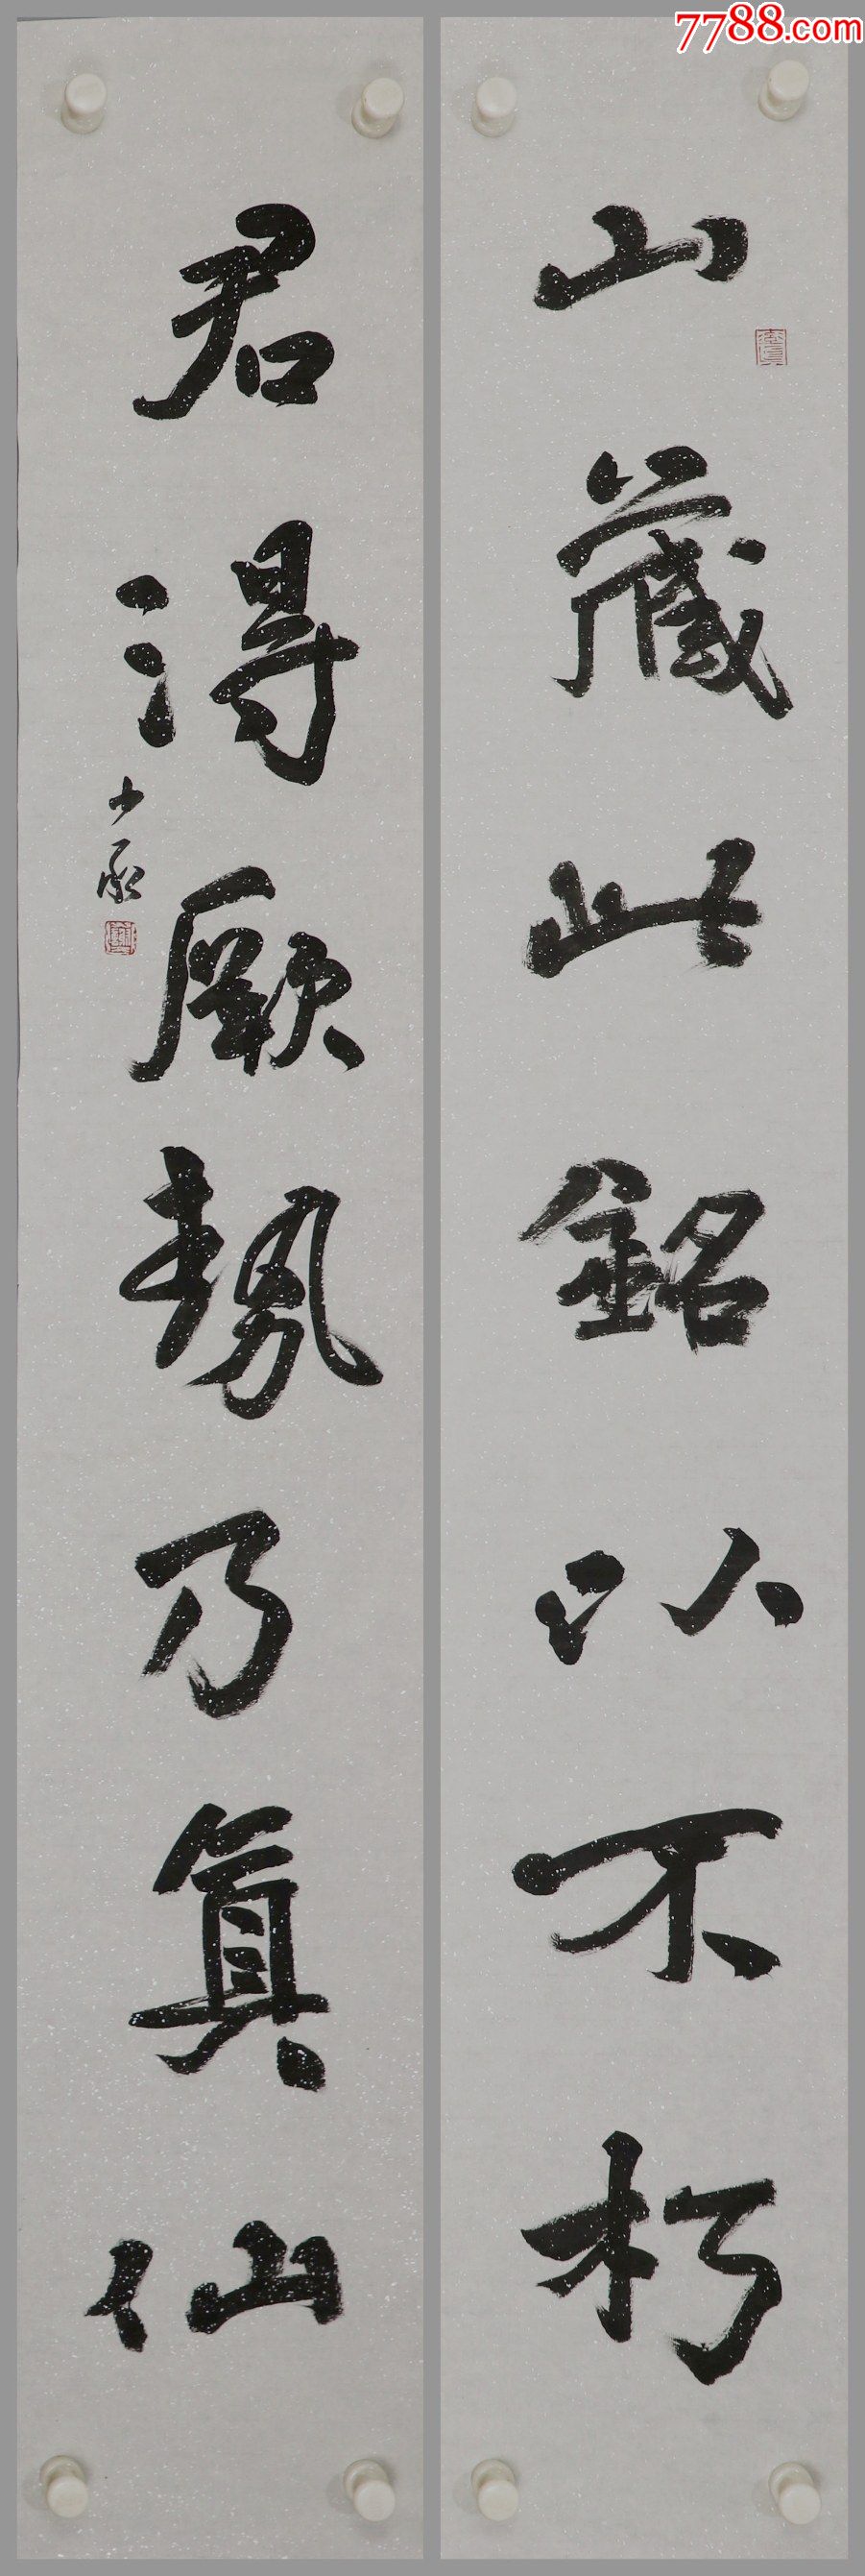 7788.com
山藏此銘以不朽
君得厥勢乃真仙
少承